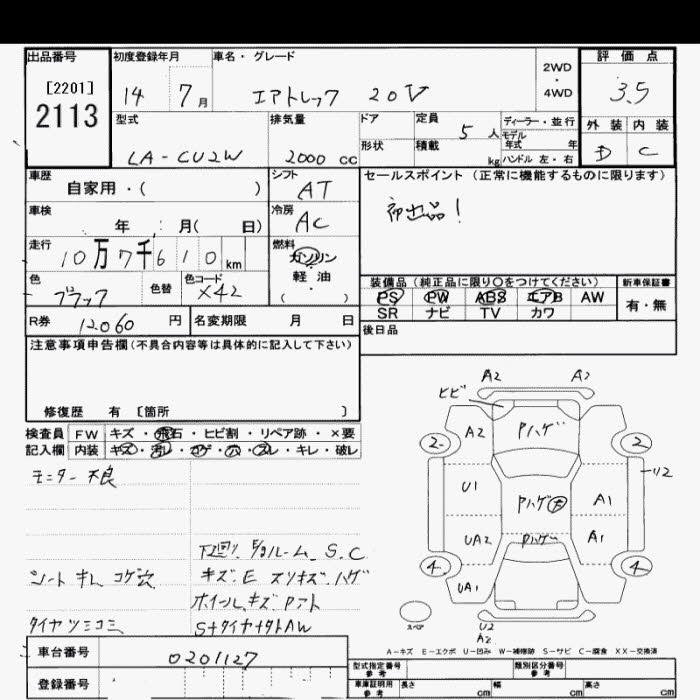 出品番号
[2201]
2113
初度登録年月
14 7月
車名・グレード
エアトレック 20V
2WD
・
4WD
評価点
3.5
外装 内装
D C
型式
LA-CU2W
排気量
2000 cc
ドア
形状
定員
5人
積載
kg
ディーラー・並行
モデル
年式 年
ハンドル 左・右
車歴
自家用・( )
シフト
AT
セールスポイント(正常に機能するものに限ります)
初出品!
車検
年 月( 日)
冷房
AC
走行
10万7千610km
燃料
ガソリン
軽・油
( )
色
ブラック
色替
色コード
X42
装備品(純正品に限り○をつけてください)
PS PW ABS エアB AW
SR ナビ TV カワ
新車保証書
有・無
R券 12060 円
名変期限 月 日
後日品
注意事項申告欄(不具合内容等は具体的に記入して下さい)
修復歴 有 [箇所 ]
検査員
記入欄
FW キズ・飛石・ヒビ割・リペア跡・×要
内装 キズ・汚レ・コゲ・穴・スレ・キレ・破レ
モニター不良
下回り、E/gルーム S.C
シート キレ コゲ穴
キズ・E スリキズ・ハゲ
ホイールキズ
タイヤツミコミ
S+タイヤ+タトAW
A2 A2
ヒビ
A2 Pハゲ
2 2
U1 Pハゲ A1
U2
UA2 Pハゲ A1
4 4
UA1
スペア
U2
A2
A-キズ E-エクボ U-凹み W-補修跡 S-サビ C-腐食 XX-交換済
車台番号
0201127
登録番号
型式指定番号
参考
類別区分番号
参考
車庫証明用
参考
長さ cm 幅 cm 高さ cm